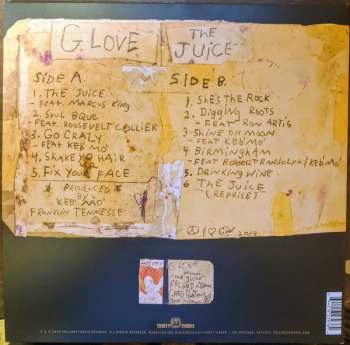 G. LOVE
THE
JUICE
SIDE A.
1. THE JUICE
- FEAT. MARCUS KING
2. SOUL BQUE
- FEAT. ROOSEVELT COLLIER
3. GO CRAZY
- FEAT KEB'MO'
4. SHAKE YO HAIR
5. FIX YOUR FACE
* PRODUCED *
BY
KEB' MO'
FRANKLIN TENNESSE
SIDE B.
1. SHE'S THE ROCK
2. DIGGING ROOTS
- FEAT RON ARTIS
3. SHINE ON MOON
- FEAT KEB'MO'
4. BIRMINGHAM
- FEAT ROBERT RANDOLPH/KEB'MO'
5. DRINKING WINE
6 THE JUICE
(REPRISE)
2019
G. LOVE
THIRTY TIGERS